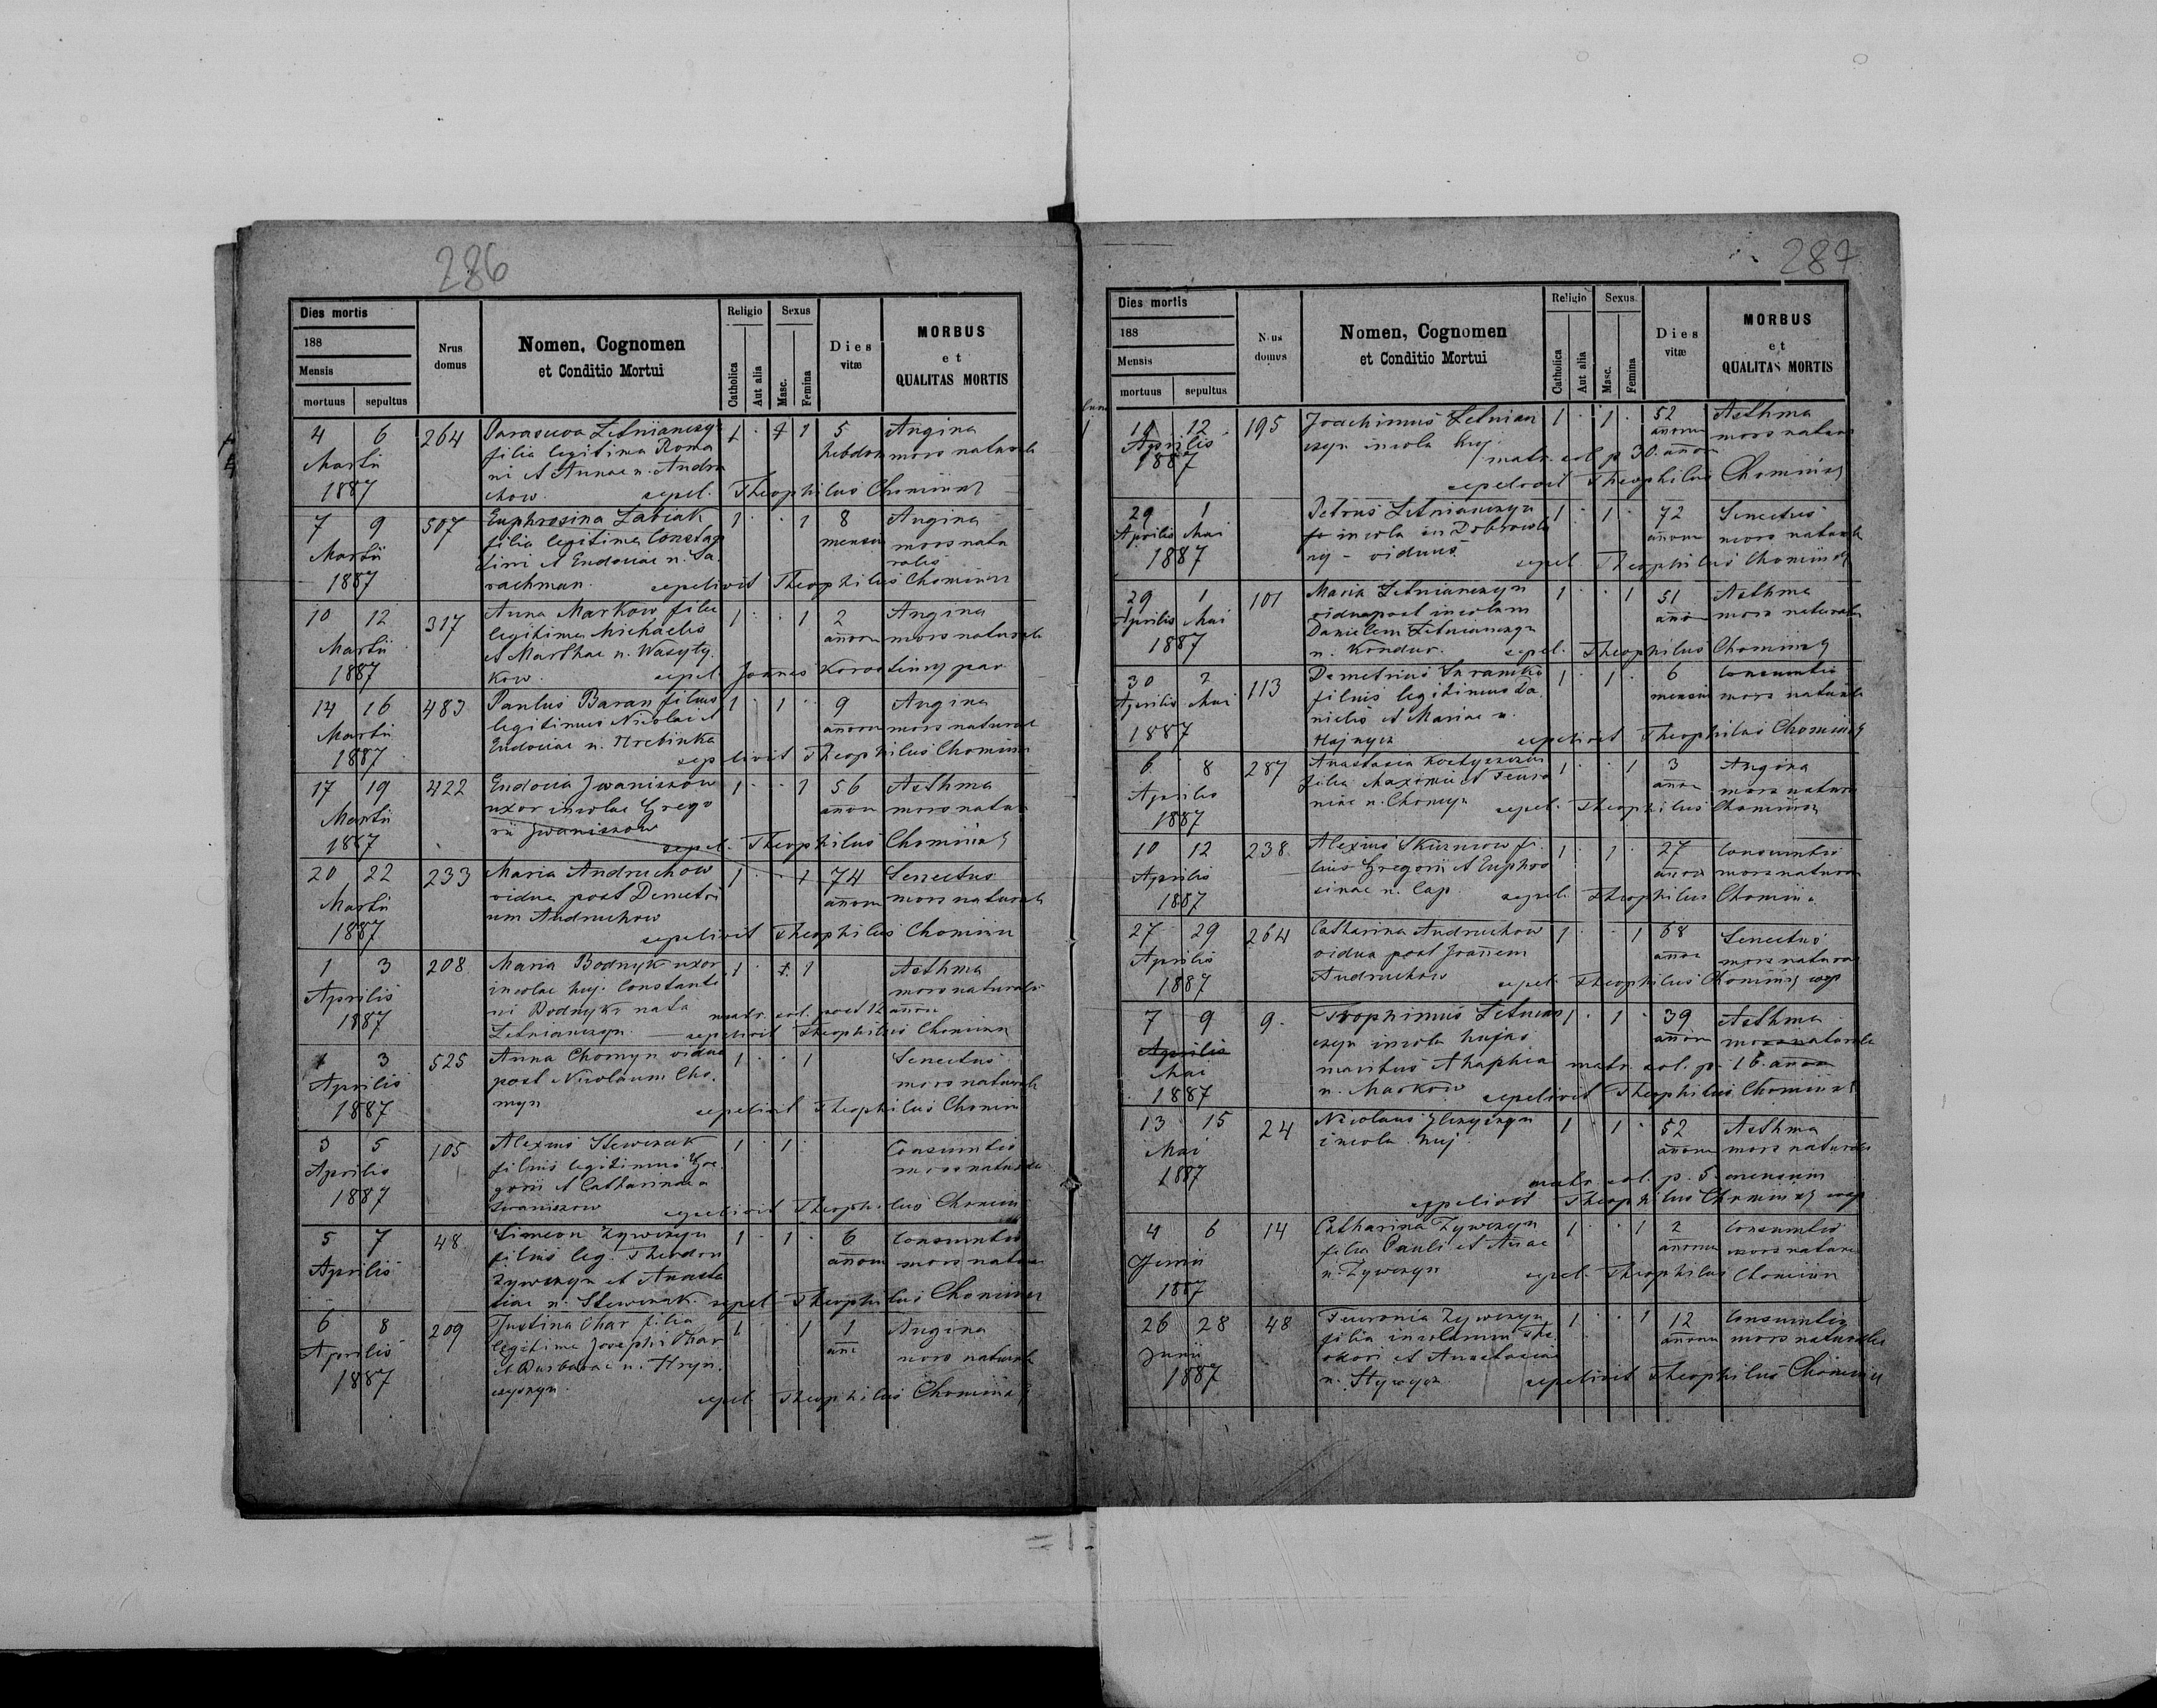 286
Dies mortis
188
Mensis
mortuus sepultus
Nrus domus
Nomen, Cognomen
et Conditio Mortui
Religio
Catholica
Aut alia
Sexus
Masc.
Femina
Dies vitæ
MORBUS
et
QUALITAS MORTIS
4 6 264 Parascwa Letnianczyn 1 1 5 Angina
Martii filia legitima Roma hebdom mors naturalis
ni et Annae n. Andru
1887 chow. sepel. Theophilus Chominski
7 9 507 Euphrosina Labiak 1 1 8 Angina
Martii filia legitima Constan mensium mors natu
tini et Eudociae n. Sa ralis
1887 rachman. sepelivit Theophilus Chominski
10 12 317 Anna Markow filia 1 1 2 Angina
legitima Michaelis annorum mors naturalis
Martii et Marthae n. Wasyly
1887 kow. sepel. Joannes Korostenny par
14 16 483 Paulus Baran filius 1 1 9 Angina
Martii legitimus Nicolai et annorum mors naturalis
1887 Eudociae n. Hrebinka
sepelivit Theophilus Chominski
17 19 422 Eudocia Jwaniszow 1 1 56 Asthma
Martii uxor incolae Grego annorum mors natur
1887 rii Jwaniszow
sepel. Theophilus Chominski
20 22 233 Maria Andruchow 1 1 74 Senectus
Martii vidua post Demetri annorum mors naturalis
1887 um Andruchow
sepelivit Theophilus Chominski
1 3 208 Maria Bodnyk uxor 1 1 Asthma
Aprilis incolae huj. Constanti mors naturalis
1887 ni Bodnyk nata matr. sol. post 12 annor
Letnianczyn. sepelivit Theophilus Chominski
1 3 525 Anna Chomyn vidua 1 1 Senectus
Aprilis post Nicolaum Cho mors naturalis
1887 myn sepelivit Theophilus Chomin
3 5 105 Alexius Stewczak 1 1 Consumtio
Aprilis filius legitimus Gre mors naturalis
1887 gorii et Catharinae n
Iwaniszow sepelivit Theophilus Chomin
5 7 48 Simeon Zywczyn 1 1 6 Consumtio
Aprilis filius leg. Theodori annorum mors natura
Zywczyn et Anasta
siae n. Stewczak. sepel. Theophilus Chominski
6 8 209 Justina Char filia 1 1 1 Angina
Aprilis legitima Josephi Char anni mors naturalis
1887 et Barbarae n. Hryn
czyszyn. sepel. Theophilus Chominski
287
Dies mortis
188
Mensis
mortuus sepultus
Nrus domus
Nomen, Cognomen
et Conditio Mortui
Religio
Catholica
Aut alia
Sexus
Masc.
Femina
Dies vitæ
MORBUS
et
QUALITAS MORTIS
11 12 195 Joachimus Letnian 1 1 52 Asthma
Aprilis czyn incola huj. annorum mors natura
1887 matr. sol p 30 annor
sepelivit Theophilus Chominski
29 1 Petrus Letnianczyn 1 1 72 Senectus
Aprilis Mai incola in Dobrowla annorum mors naturalis
1887 ny - viduus
sepel Theophilus Chominski
29 1 101 Maria Letnianczyn 1 1 51 Asthma
Aprilis Mai vidua post incolam anno mors naturalis
Danielem Letnianczyn
1887 n. Kondur. sepel. Theophilus Chominski
30 2 113 Demetrius 1 1 6 Consumtio
Aprilis Mai filius legitimus Da mensium mors naturalis
nielis et Mariae n.
1887 sepelivit Theophilus Chominski
6 8 287 Anastasia 1 1 3 Angina
Aprilis filia Maximi et Feuro annor mors natura
1887 niae n. Chomyn sepel. Theophilus Chominski
10 12 238 Alexius fi 1 1 27 Consumtio
Aprilis lius Gregorii et Euphro annor mors natura
1887 sinae n. Cap. sepel. Theophilus Chomin
27 29 264 Catharina Andruchow 1 1 68 Senectus
Aprilis vidua post Joannem annor mors natura
1887 Andruchow sepel. Theophilus Chominski
7 9 9. Trophimus Letnian 1 1 39 Asthma
Aprilis czyn incola hujas annorum mors naturalis
Mai maritus Ahaphiae matr. sol. p. 16 annor
1887 n. Markow sepelivit Theophilus Chominski
13 15 24 Nicolaus 1 1 52 Asthma
Mai incola huj. annorum mors naturalis
1887 matr. sol. p. 5 mensium
sepelivit Theophilus Chominski
4 6 14 Catharina Zywczyn 1 1 2 Consumtio
Junii filia Pauli et Annae annorum mors natura
1887 n. Zywczyn sepel. Theophilus Chominski
26 28 48 Feuronia Zywczyn 1 1 12 Consumtio
Junii filia incolarum The annorum mors naturalis
odori et Anastasiae
1887 n. sepelivit Theophilus Chominski